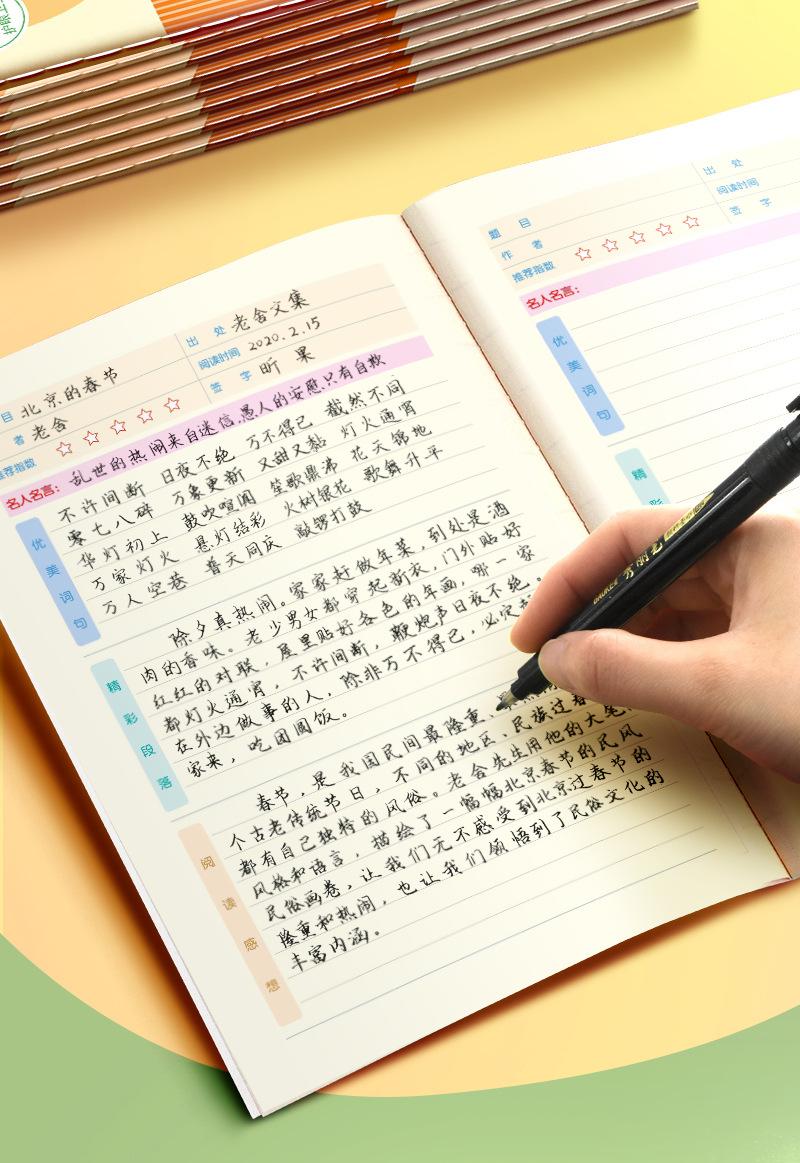 护眼
出 处
题 目
阅读时间
作 者
签 字
推荐指数
名人名言:
优美词句
精彩
目 北京的春节
出 处 老舍文集
者 老舍
阅读时间 2020.2.15
推荐指数
签 字 昕 果
名人名言: 乱世的热闹来自迷信,愚人的安慰只有自欺
优美词句
不许间断 日夜不绝 万不得已 截然不同
零七八碎 万象更新 又甜又黏 灯火通宵
华灯初上 鼓吹喧阗 笙歌鼎沸 花天锦地
万家灯火 悬灯结彩 火树银花 歌舞升平
万人空巷 普天同庆 敲锣打鼓
精彩段落
除夕真热闹。家家赶做年菜,到处是酒
肉的香味。老少男女都穿起新衣,门外贴好
红红的对联,屋里贴好各色的年画,哪一家
都灯火通宵,不许间断,鞭炮声日夜不绝。
在外边做事的人,除非万不得已,必定
家来,吃团圆饭。
阅读感想
春节,是我国民间最隆重、
个古老传统节日,不同的地区、民族过春
都有自己独特的风俗。老舍先生用他的大笔
风格和语言,描绘了一幅幅北京春节的民风
民俗画卷,让我们无不感受到北京过春节的
隆重和热闹,也让我们领悟到了民俗文化的
丰富内涵。